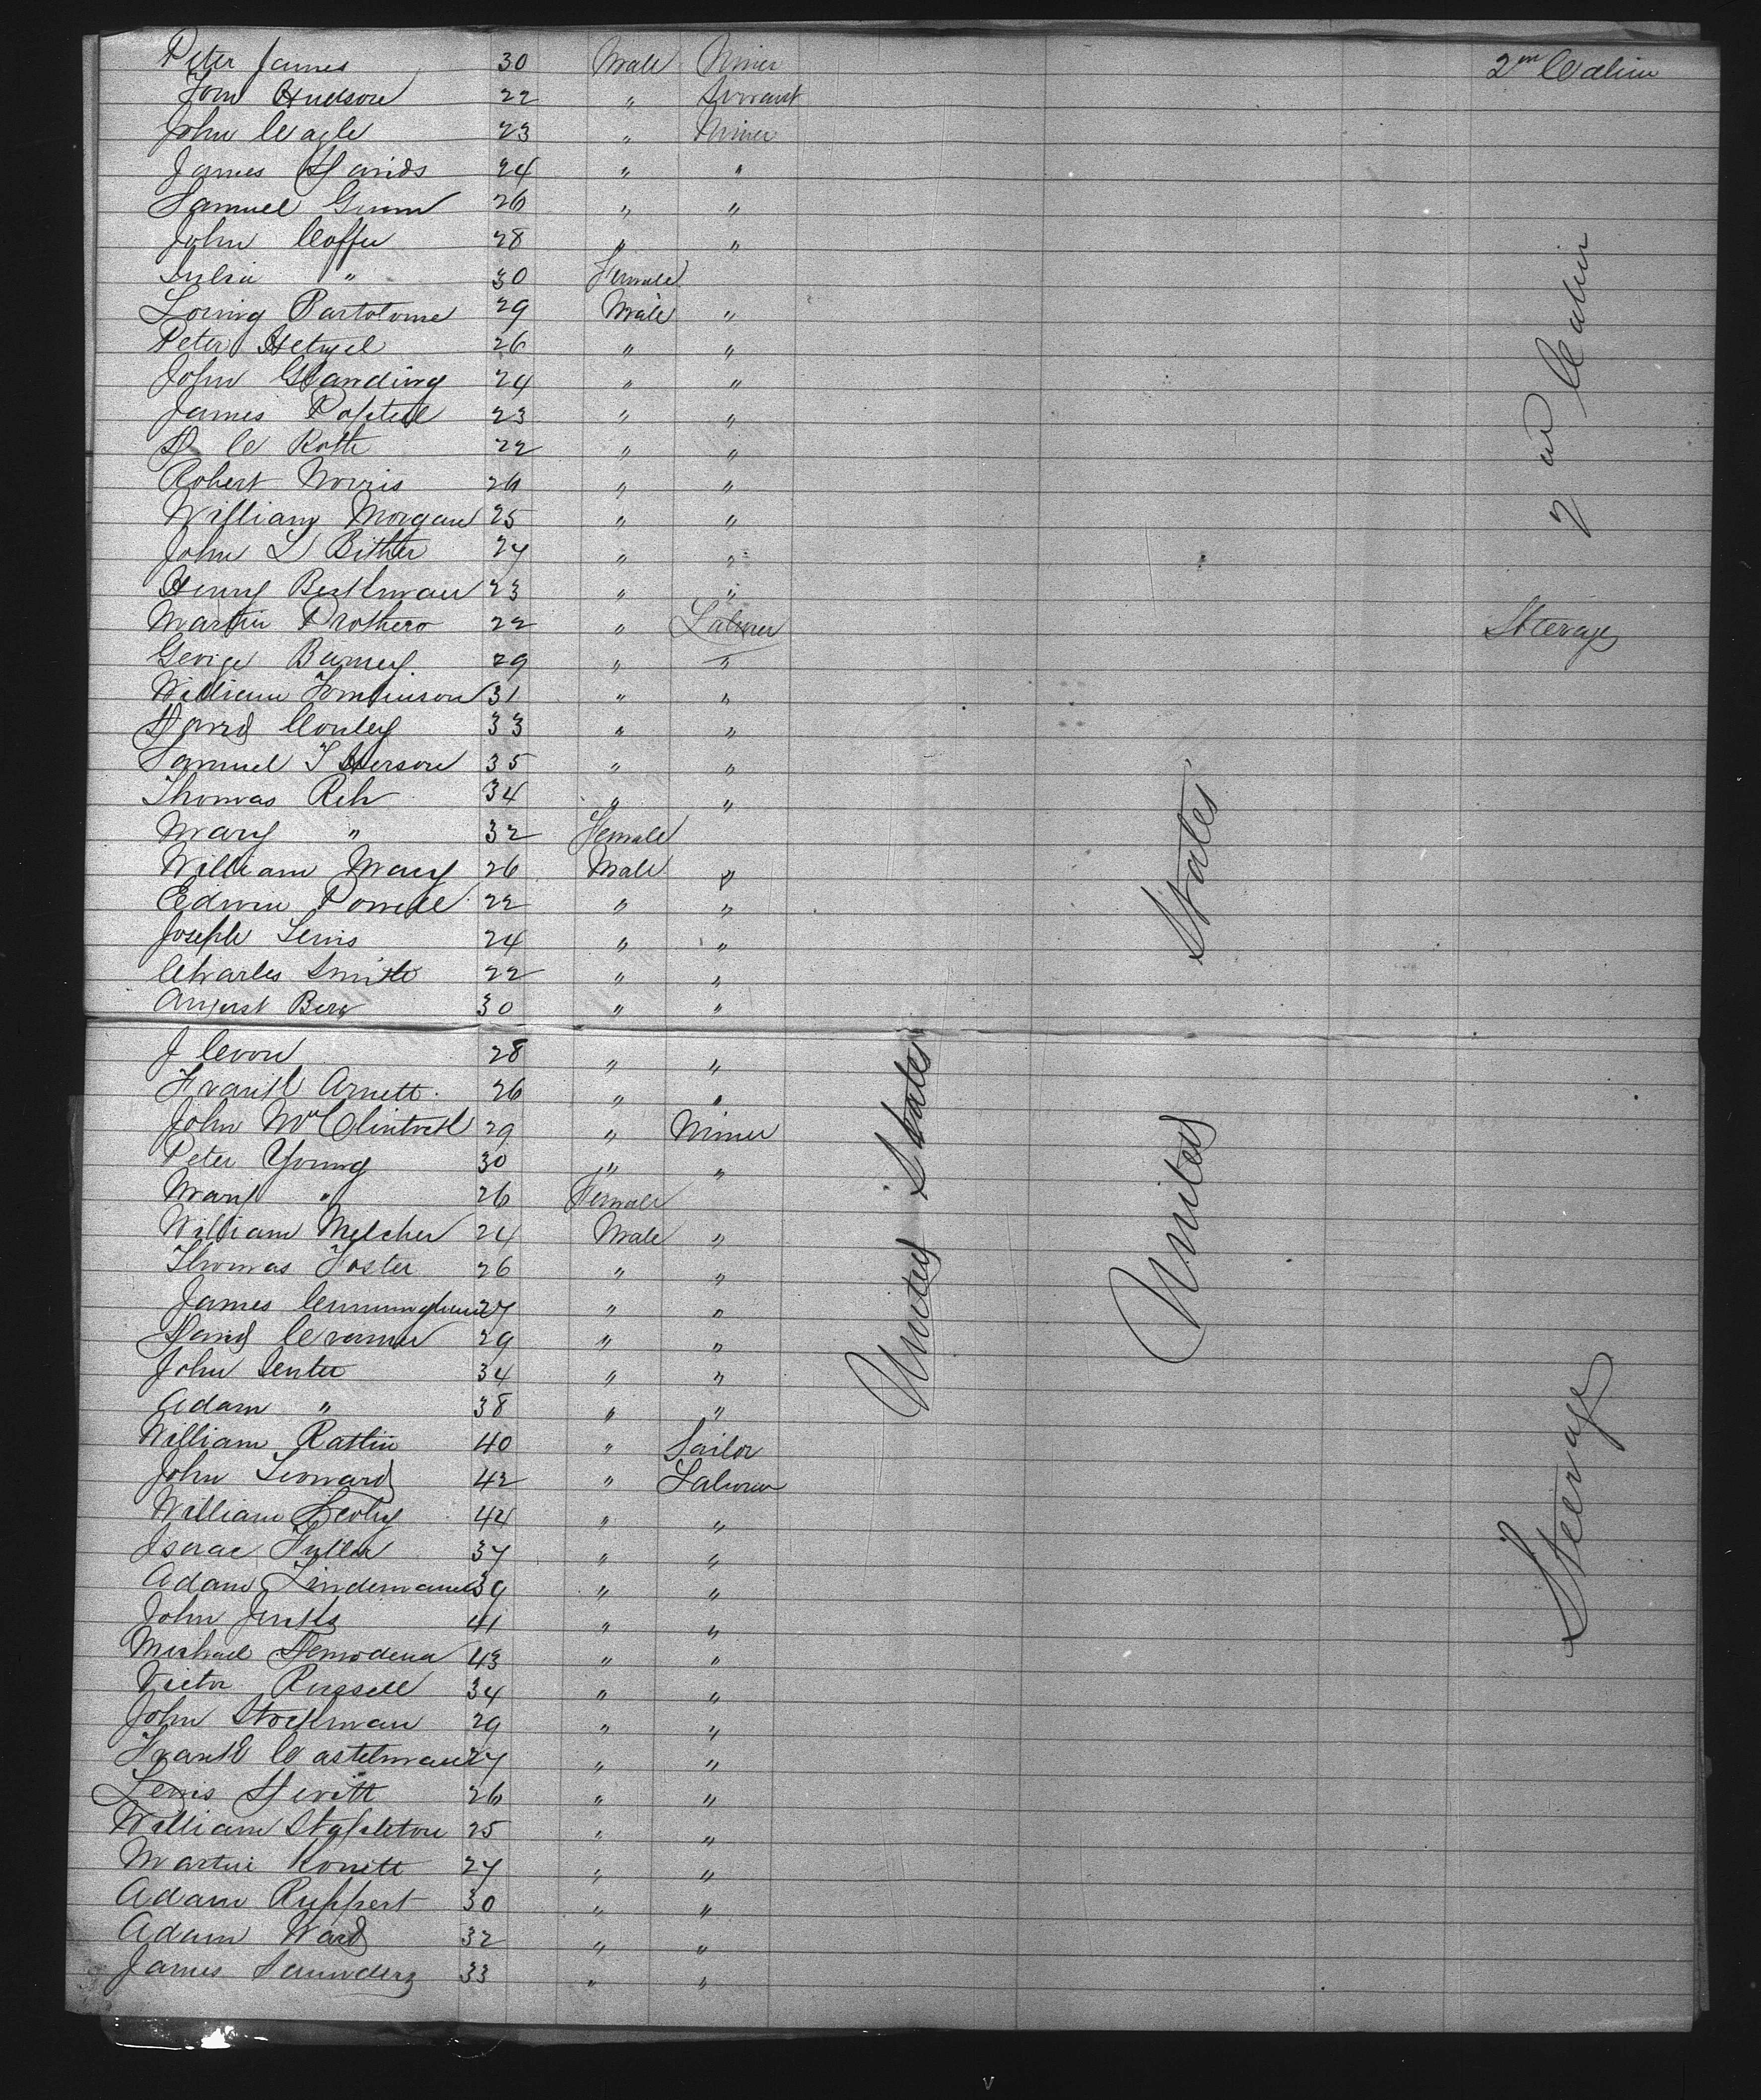 Peter James 30 Male Miner 2nd Cabin
Tom Hudson 22 " Servant
John Cagle 23 " Miner
James Davids 24 " "
Samuel Gunn 26 " "
John Coffer 28 " "
Julia " 30 Female
Loring Bartolome 29 Male "
Peter Hetzel 26 " "
John Standing 24 " "
James 23 " "
D C Roth 22 " "
Robert Norris 26 " "
William Morgan 25 " "
John L Bither 27 " "
Henry 23 " "
Martin Prothero 22 " Laborer Steerage
George Barney 29 " "
William Tomlinson 31 " "
David Conley 33 " "
Samuel I Herson 35 " "
Thomas Reh 34 " "
Mary " 32 Female
William Macy 26 Male "
Edwin Powell 22 " "
Joseph Lewis 24 " "
Charles Smith 22 " "
August Berg 30 " "
J Coon 28 " "
Frank Arnett 26 " "
John McClintock 29 " Miner
Peter Young 30 " "
Mary " 26 Female
William Melcher 24 Male "
Thomas Foster 26 " "
James Cunningham 27 " "
David Cramer 29 " "
John Senter 34 " "
Adam " 38 " "
William Ratlin 40 " Sailor
John Leonard 42 " Laborer
William 44 " "
Isaac Fuller 37 " "
Adam Lindemann 39 " "
John Jenks 41 " "
Michael Demodena 43 " "
Victor Russell 34 " "
John Stockman 29 " "
Frank Castelman 27 " "
Lewis Hewitt 26 " "
William Stapleton 25 " "
Martin 27 " "
Adam Ruppert 30 " "
Adam Ward 32 " "
James Saunders 33 " "
United States
United States
2nd Cabin
Steerage